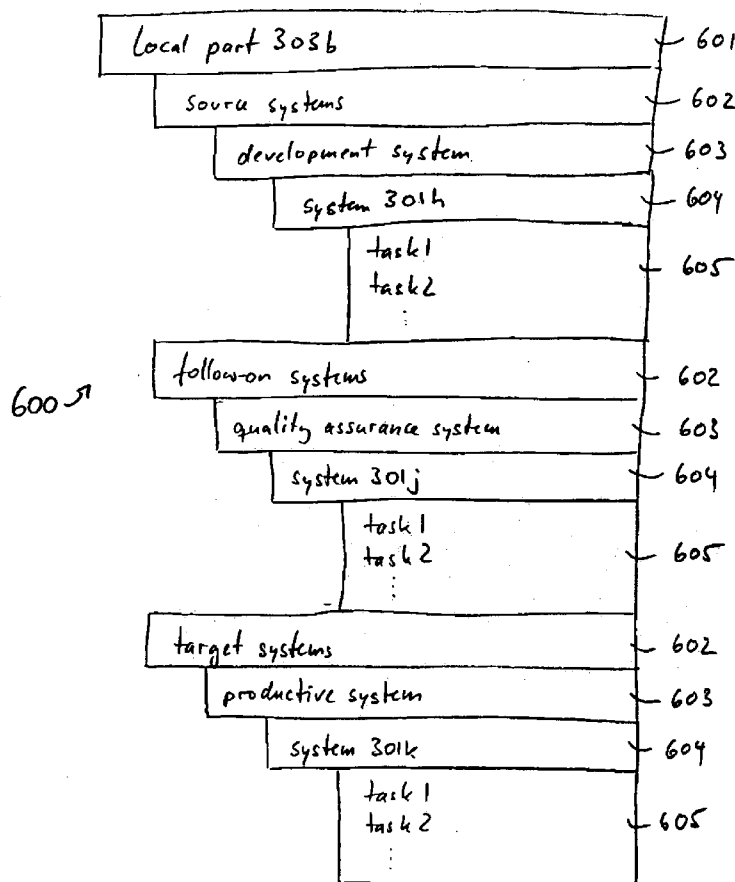 Local part 303b 601
source systems 602
development system 603
system 301h 604
task1
task2 605
⋮
follow-on systems 602
600
quality assurance system 603
system 301j 604
task1
task2 605
⋮
target systems 602
productive system 603
system 301k 604
task1
task2 605
⋮